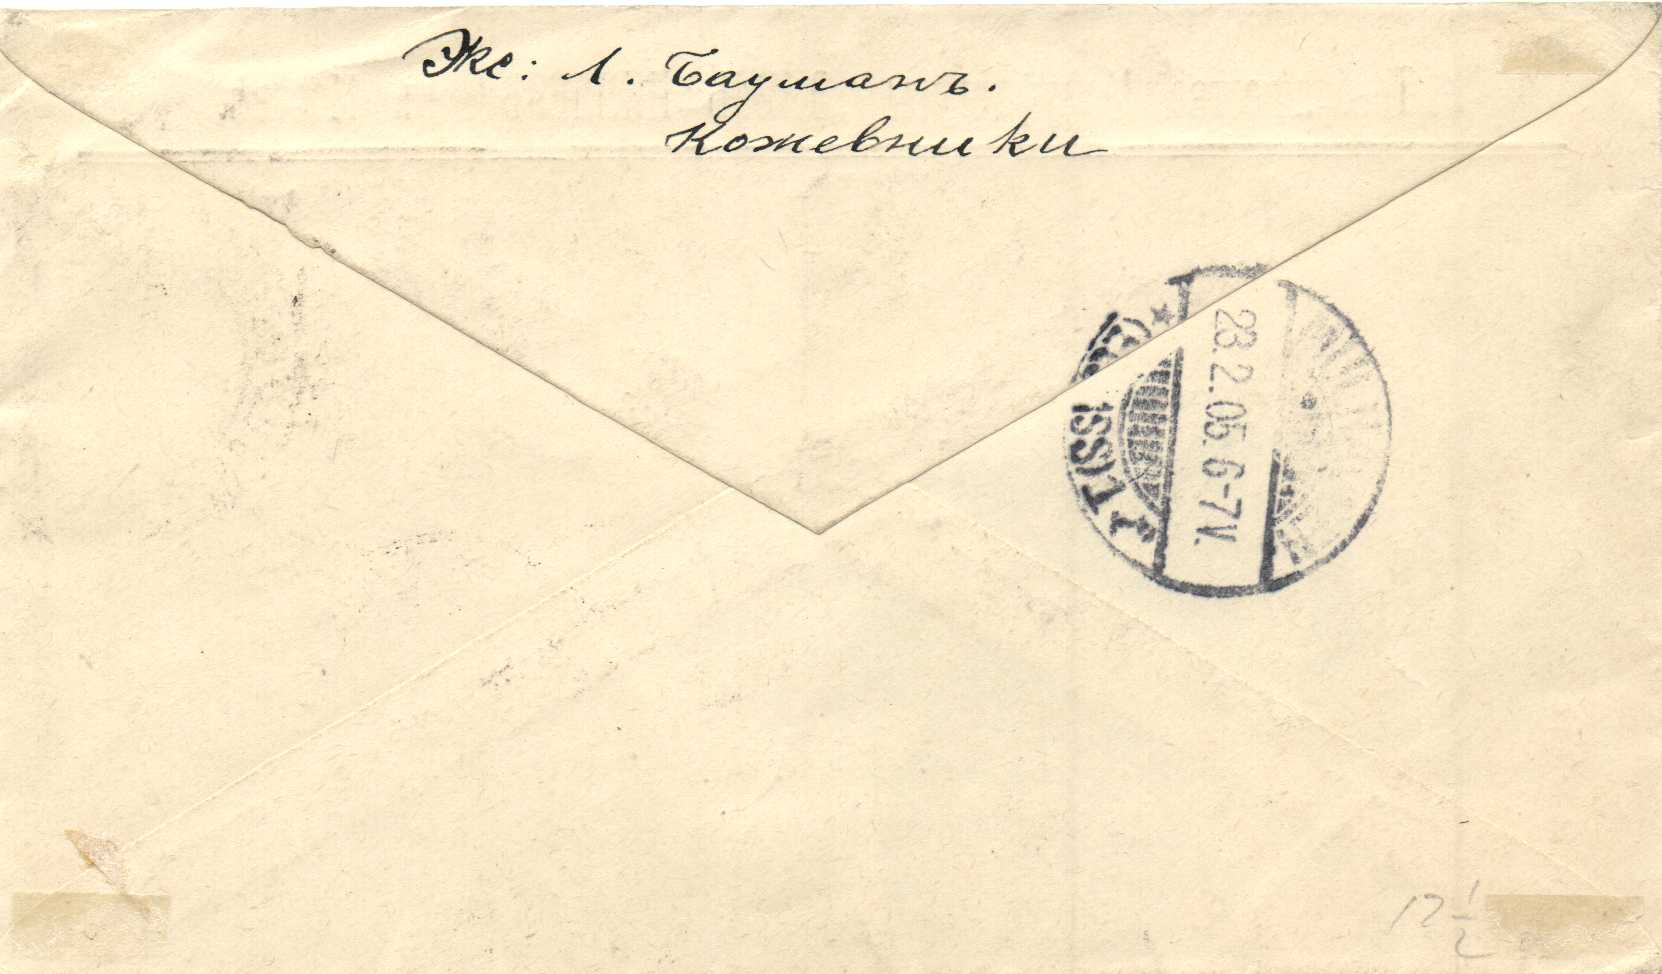 Экс: Л. Бауманъ.
Кожевники
LISSA
23.2.05. 6-7V.
17 1/2